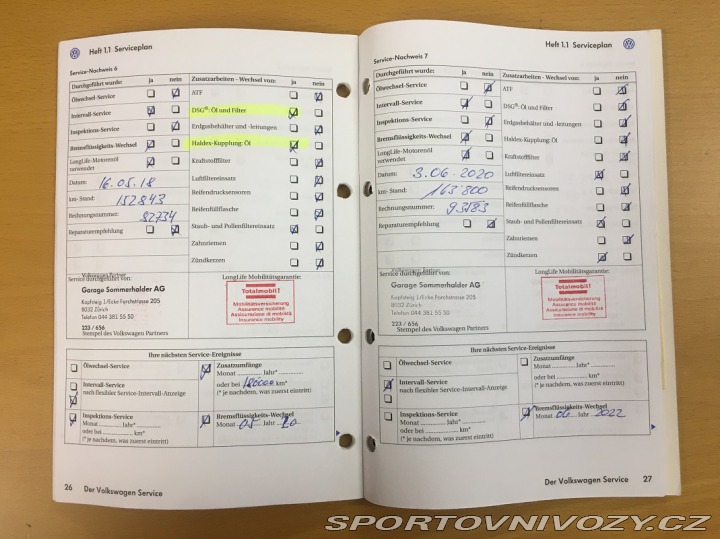 Heft 1.1 Serviceplan
Service-Nachweis 6
Durchgeführt wurde: ja nein Zusatzarbeiten - Wechsel von: ja nein
Ölwechsel-Service ATF
Intervall-Service DSG®: Öl und Filter
Inspektions-Service Erdgasbehälter und -leitungen
Bremsflüssigkeits-Wechsel Haldex-Kupplung: Öl
LongLife-Motorenöl verwendet Kraftstofffilter
Datum: 16.05.18 Luftfiltereinsatz
km- Stand: 152843 Reifendrucksensoren
Rechnungsnummer: 92734 Reifenfüllflasche
Reparaturempfehlung Staub- und Pollenfiltereinsatz
Zahnriemen
Zündkerzen
Service durchgeführt von: LongLife Mobilitätsgarantie:
Garage Sommerhalder AG
Kapfsteig 1/Ecke Forchstrasse 205
8032 Zürich
Telefon 044 381 55 50
223 / 656
Stempel des Volkswagen Partners
Totalmobil!
Mobilitätsversicherung
Assurance mobilité
Assicurazione di mobilità
Insurance mobility
Ihre nächsten Service-Ereignisse
Ölwechsel-Service Zusatzumfänge
Monat Jahr*
Intervall-Service oder bei 180000 km*
nach flexibler Service-Intervall-Anzeige (* je nachdem, was zuerst eintritt)
Inspektions-Service Bremsflüssigkeits-Wechsel
Monat Jahr* Monat 05 Jahr 20
oder bei km*
(* je nachdem, was zuerst eintritt)
26 Der Volkswagen Service
Heft 1.1 Serviceplan
Service-Nachweis 7
Durchgeführt wurde: ja nein Zusatzarbeiten - Wechsel von: ja nein
Ölwechsel-Service ATF
Intervall-Service DSG®: Öl und Filter
Inspektions-Service Erdgasbehälter und -leitungen
Bremsflüssigkeits-Wechsel Haldex-Kupplung: Öl
LongLife-Motorenöl verwendet Kraftstofffilter
Datum: 3.06.2020 Luftfiltereinsatz
km- Stand: 163'800 Reifendrucksensoren
Rechnungsnummer: Reifenfüllflasche
Reparaturempfehlung Staub- und Pollenfiltereinsatz
Zahnriemen
Zündkerzen
Service durchgeführt von: LongLife Mobilitätsgarantie:
Garage Sommerhalder AG
Kapfsteig 1/Ecke Forchstrasse 205
8032 Zürich
Telefon 044 381 55 50
223 / 656
Stempel des Volkswagen Partners
Totalmobil!
Mobilitätsversicherung
Assurance mobilité
Assicurazione di mobilità
Insurance mobility
Ihre nächsten Service-Ereignisse
Ölwechsel-Service Zusatzumfänge
Monat Jahr*
Intervall-Service oder bei km*
nach flexibler Service-Intervall-Anzeige (* je nachdem, was zuerst eintritt)
Inspektions-Service Bremsflüssigkeits-Wechsel
Monat Jahr* Monat 06 Jahr 2022
oder bei km*
(* je nachdem, was zuerst eintritt)
Der Volkswagen Service 27
SPORTOVNIVOZY.CZ